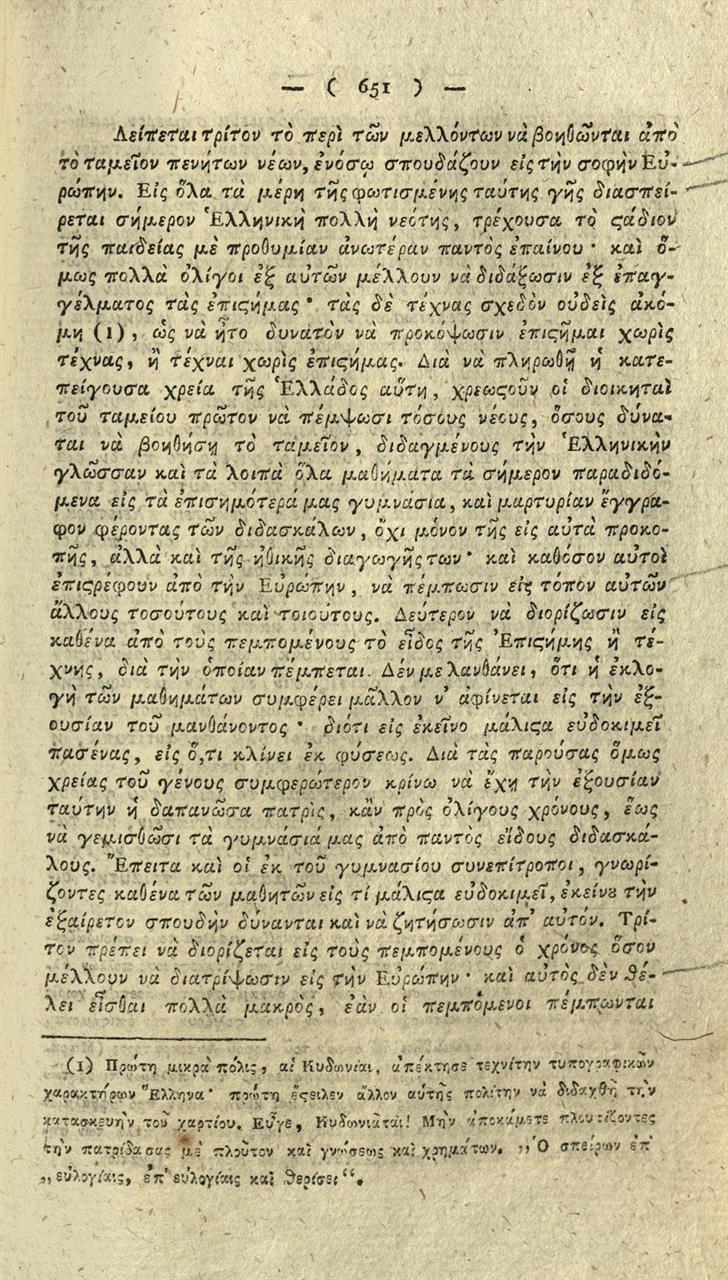 — ( 651 ) —
Λείπεται τρίτον τὸ περὶ τῶν μελλόντων νὰ βοηθῶνται ἀπὸ
τὸ ταμεῖον πενήτων νέων, ἐνόσῳ σπουδάζουν εἰς τὴν σοφὴν Εὐ-
ρώπην. Εἰς ὅλα τὰ μέρη τῆς φωτισμένης ταύτης γῆς διασπεί-
ρεται σήμερον Ἑλληνικὴ πολλὴ νεότης, τρέχουσα τὸ ϛάδιον
τῆς παιδείας μὲ προθυμίαν ἀνωτέραν παντὸς ἐπαίνου· καὶ ὅ-
μως πολλὰ ὀλίγοι ἐξ αὐτῶν μέλλουν νὰ διδάξωσιν ἐξ ἐπαγ-
γέλματος τὰς ἐπιϛήμας· τὰς δὲ τέχνας σχεδὸν οὐδεὶς ἀκό-
μη (1), ὡς νὰ ἦτο δυνατὸν νὰ προκόψωσιν ἐπιϛῆμαι χωρὶς
τέχνας, ἢ τέχναι χωρὶς ἐπιϛήμας. Διὰ νὰ πληρωθῇ ἡ κατε-
πείγουσα χρεία τῆς Ἑλλάδος αὕτη, χρεωϛοῦν οἱ διοικηταὶ
τοῦ ταμείου πρῶτον νὰ πέμψωσι τόσους νέους, ὅσους δύνα-
ται νὰ βοηθήσῃ τὸ ταμεῖον, διδαγμένους τὴν Ἑλληνικὴν
γλῶσσαν καὶ τὰ λοιπὰ ὅλα μαθήματα τὰ σήμερον παραδιδό-
μενα εἰς τὰ ἐπισημότερά μας γυμνάσια, καὶ μαρτυρίαν ἔγγρα-
φον φέροντας τῶν διδασκάλων, ὄχι μόνον τῆς εἰς αὐτὰ προκο-
πῆς, ἀλλὰ καὶ τῆς ἠθικῆς διαγωγῆς των· καὶ καθόσον αὐτοὶ
ἐπιϛρέφουν ἀπὸ τὴν Εὐρώπην, νὰ πέμπωσιν εἰς τόπον αὐτῶν
ἄλλους τοσούτους καὶ τοιούτους. Δεύτερον νὰ διορίζωσιν εἰς
καθένα ἀπὸ τοὺς πεμπομένους τὸ εἶδος τῆς Ἐπιϛήμης ἢ τέ-
χνης, διὰ τὴν ὁποίαν πέμπεται. Δέν με λανθάνει, ὅτι ἡ ἐκλο-
γὴ τῶν μαθημάτων συμφέρει μᾶλλον ν' ἀφίνεται εἰς τὴν ἐξ-
ουσίαν τοῦ μανθάνοντος· διότι εἰς ἐκεῖνο μάλιϛα εὐδοκιμεῖ
πασένας, εἰς ὅ,τι κλίνει ἐκ φύσεως. Διὰ τὰς παρούσας ὅμως
χρείας τοῦ γένους συμφερώτερον κρίνω νὰ ἔχῃ τὴν ἐξουσίαν
ταύτην ἡ δαπανῶσα πατρὶς, κἂν πρὸς ὀλίγους χρόνους, ἕως
νὰ γεμισθῶσι τὰ γυμνάσιά μας ἀπὸ παντὸς εἴδους διδασκά-
λους. Ἔπειτα καὶ οἱ ἐκ τοῦ γυμνασίου συνεπίτροποι, γνωρί-
ζοντες καθένα τῶν μαθητῶν εἰς τί μάλιϛα εὐδοκιμεῖ, ἐκείνου τὴν
ἐξαίρετον σπουδὴν δύνανται καὶ νὰ ζητήσωσιν ἀπ' αὐτόν. Τρί-
τον πρέπει νὰ διορίζεται εἰς τοὺς πεμπομένους ὁ χρόνος ὅσον
μέλλουν νὰ διατρίψωσιν εἰς τὴν Εὐρώπην· καὶ αὐτὸς δὲν θέ-
λει εἶσθαι πολλὰ μακρὸς, ἐὰν οἱ πεμπόμενοι πέμπωνται
(1) Πρώτη μικρὰ πόλις, αἱ Κυδωνίαι, ἀπέκτησε τεχνίτην τυπογραφικῶν
χαρακτήρων Ἕλληνα· πρώτη ἔϛειλεν ἄλλον αὐτῆς πολίτην νὰ διδαχθῇ τὴν
κατασκευὴν τοῦ χαρτίου. Εὖγε, Κυδωνιᾶται! Μὴν ἀποκάμετε πλουτίζοντες
τὴν πατρίδα σας μὲ πλοῦτον καὶ γνώσεως καὶ χρημάτων. „Ὁ σπείρων ἐπ'
„εὐλογίαις, ἐπ' εὐλογίαις καὶ θερίσει“.